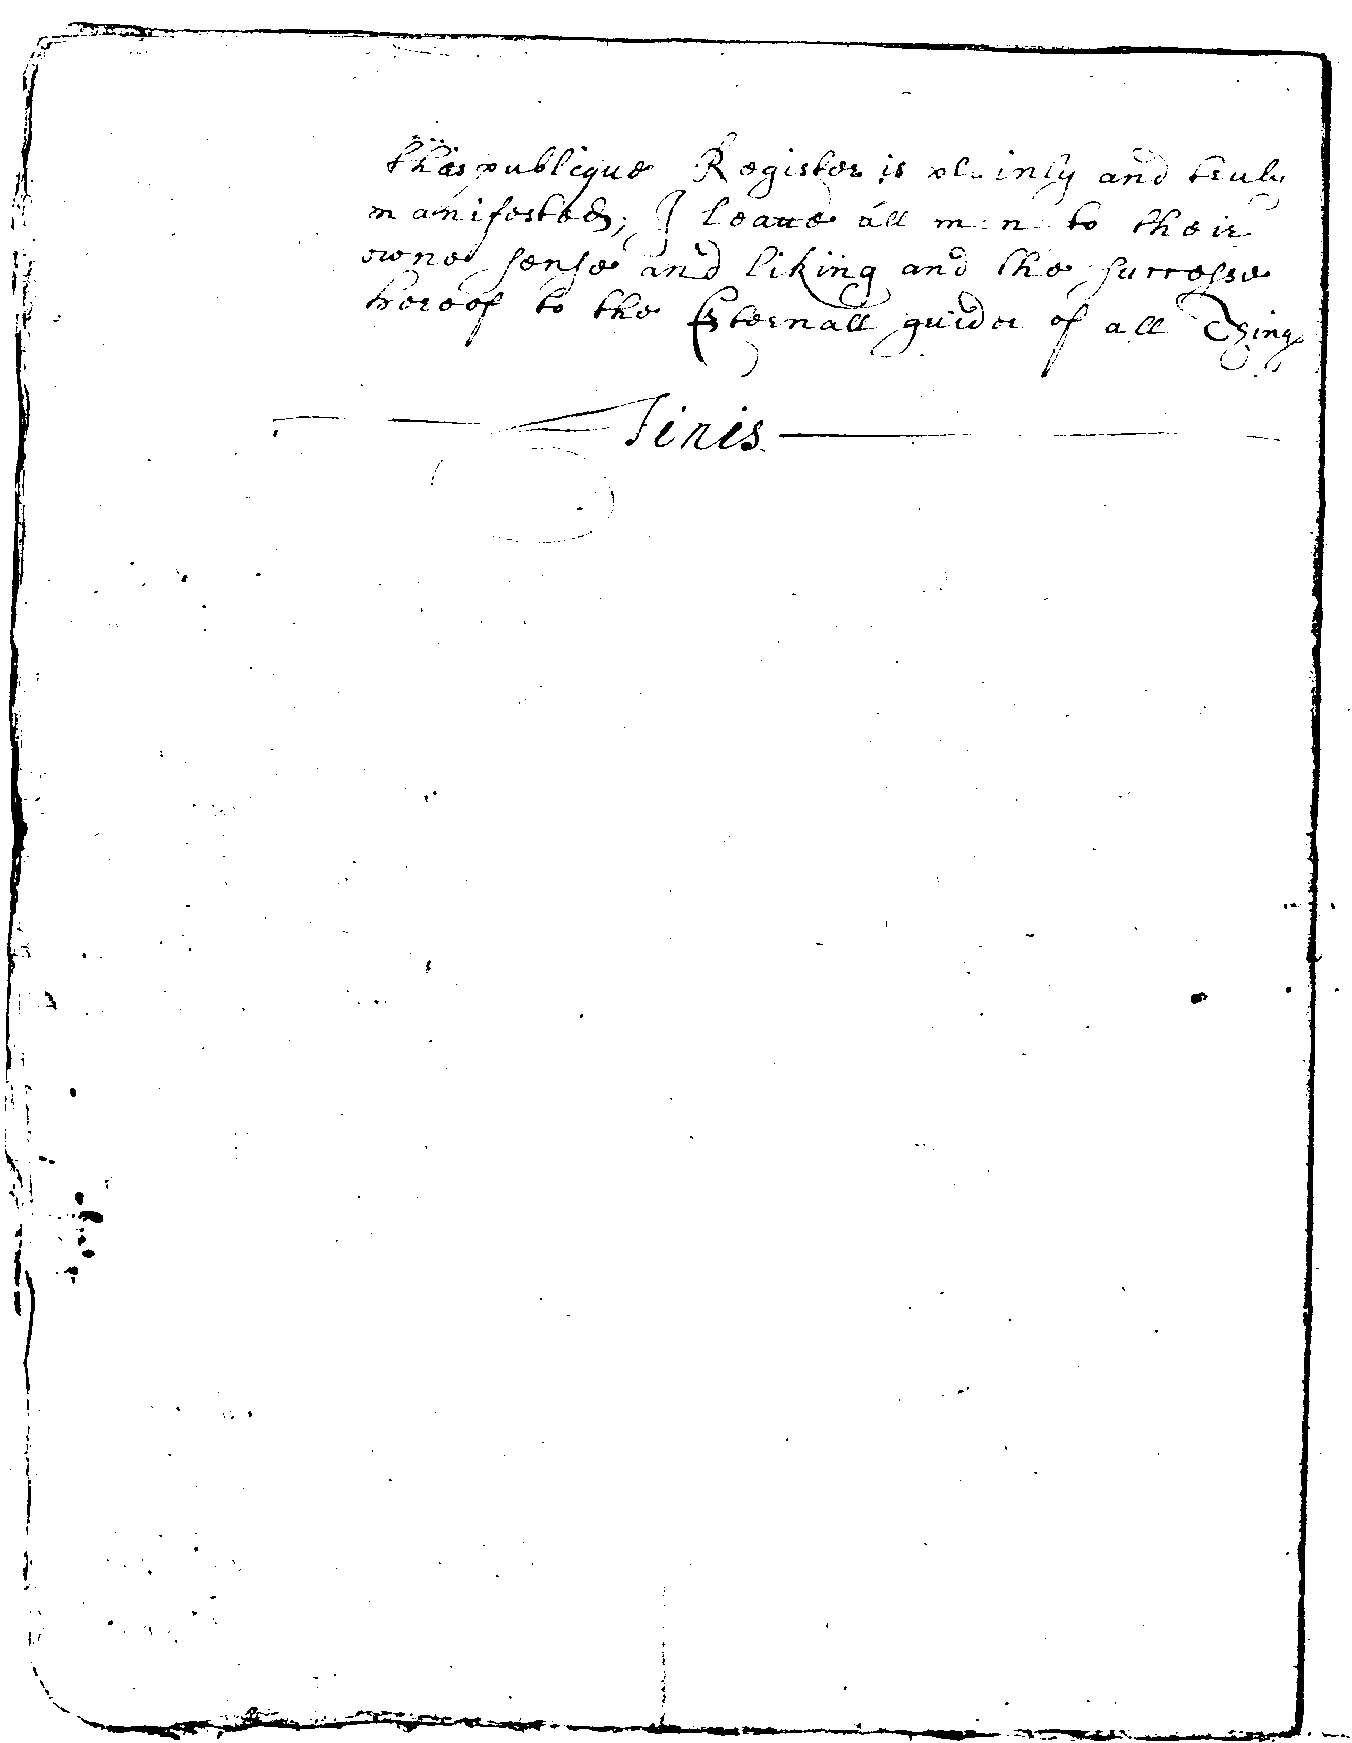 this publique Register is plainly and truly
manifested; I leaue all men to their
owne sense and liking and the successe
hereof to the Eternall guider of all Things
Finis